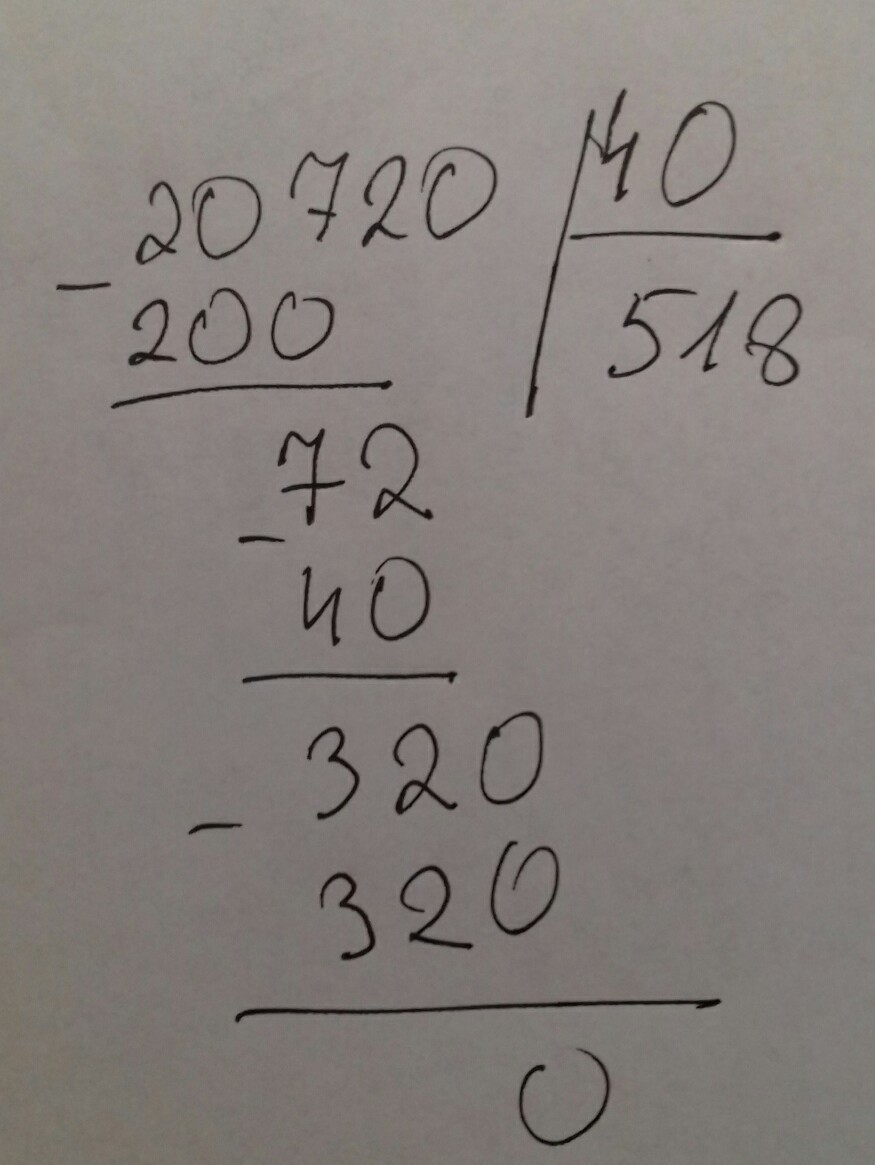 20720 40
- 200 518
72
- 40
320
- 320
0